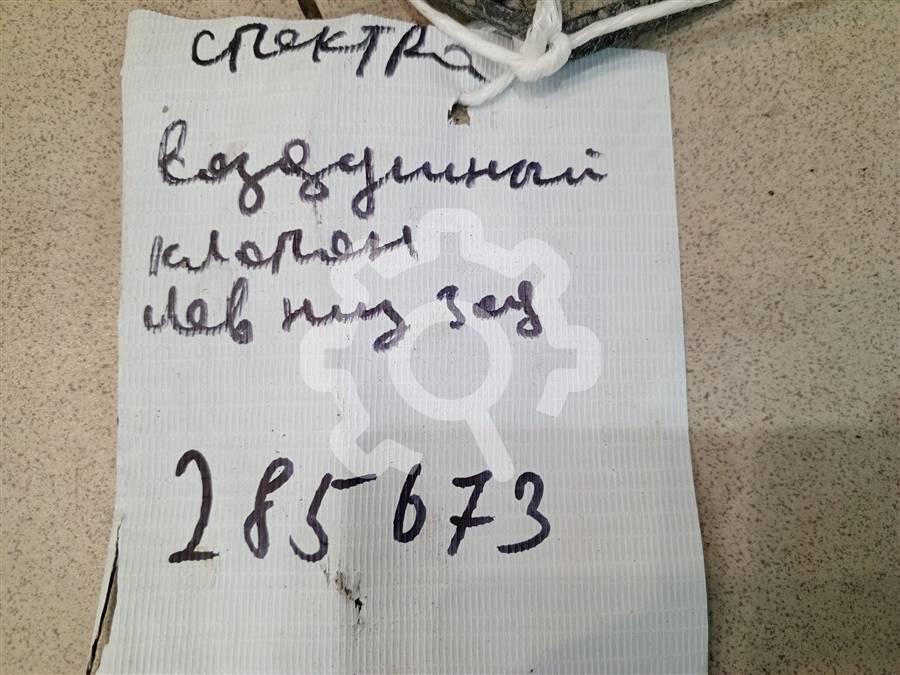 спектра
воздушный
клапан
лев низ зад
285673